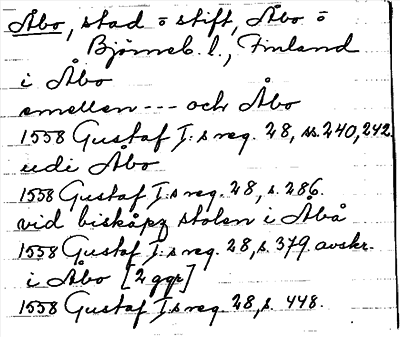 Åbo, stad o stift, Åbo o
Björneb. l., Finland
i Åbo
emellen --- och Åbo
1558 Gustaf I:s reg. 28, ss. 240, 242.
udi Åbo
1558 Gustaf I:s reg. 28, s. 286.
vid biskåpz stolen i Åbå
1558 Gustaf I:s reg. 28, s. 379. avskr.
i Åbo [2 ggr]
1558 Gustaf I:s reg. 28, s. 448.